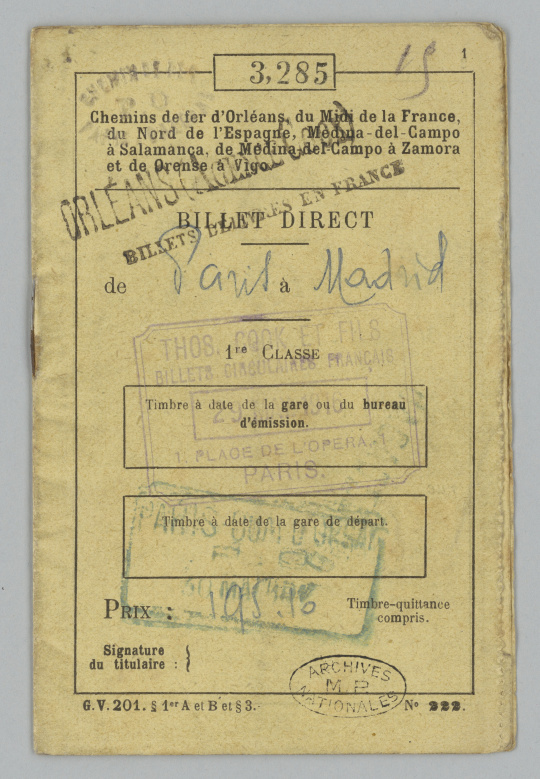 15
1
3,285
Chemins de fer d'Orléans, du Midi de la France,
du Nord de l'Espagne, Médina-del-Campo
à Salamanca, de Médina-del-Campo à Zamora
et de Orense à Vigo.
ORLÉANS
BILLETS DÉLIVRÉS EN FRANCE
BILLET DIRECT
de Paris à Madrid
THOS. COOK ET FILS
1re CLASSE
BILLETS CIRCULAIRES FRANÇAIS
Timbre à date de la gare ou du bureau
d'émission.
1. PLACE DE L'OPERA. 1
PARIS.
PARIS QUAI D'ORSAY
Timbre à date de la gare de départ.
PRIX :
Timbre-quittance
compris.
Signature
du titulaire :
ARCHIVES
M P
NATIONALES
G.V. 201. § 1er A et B et § 3.
No 222.